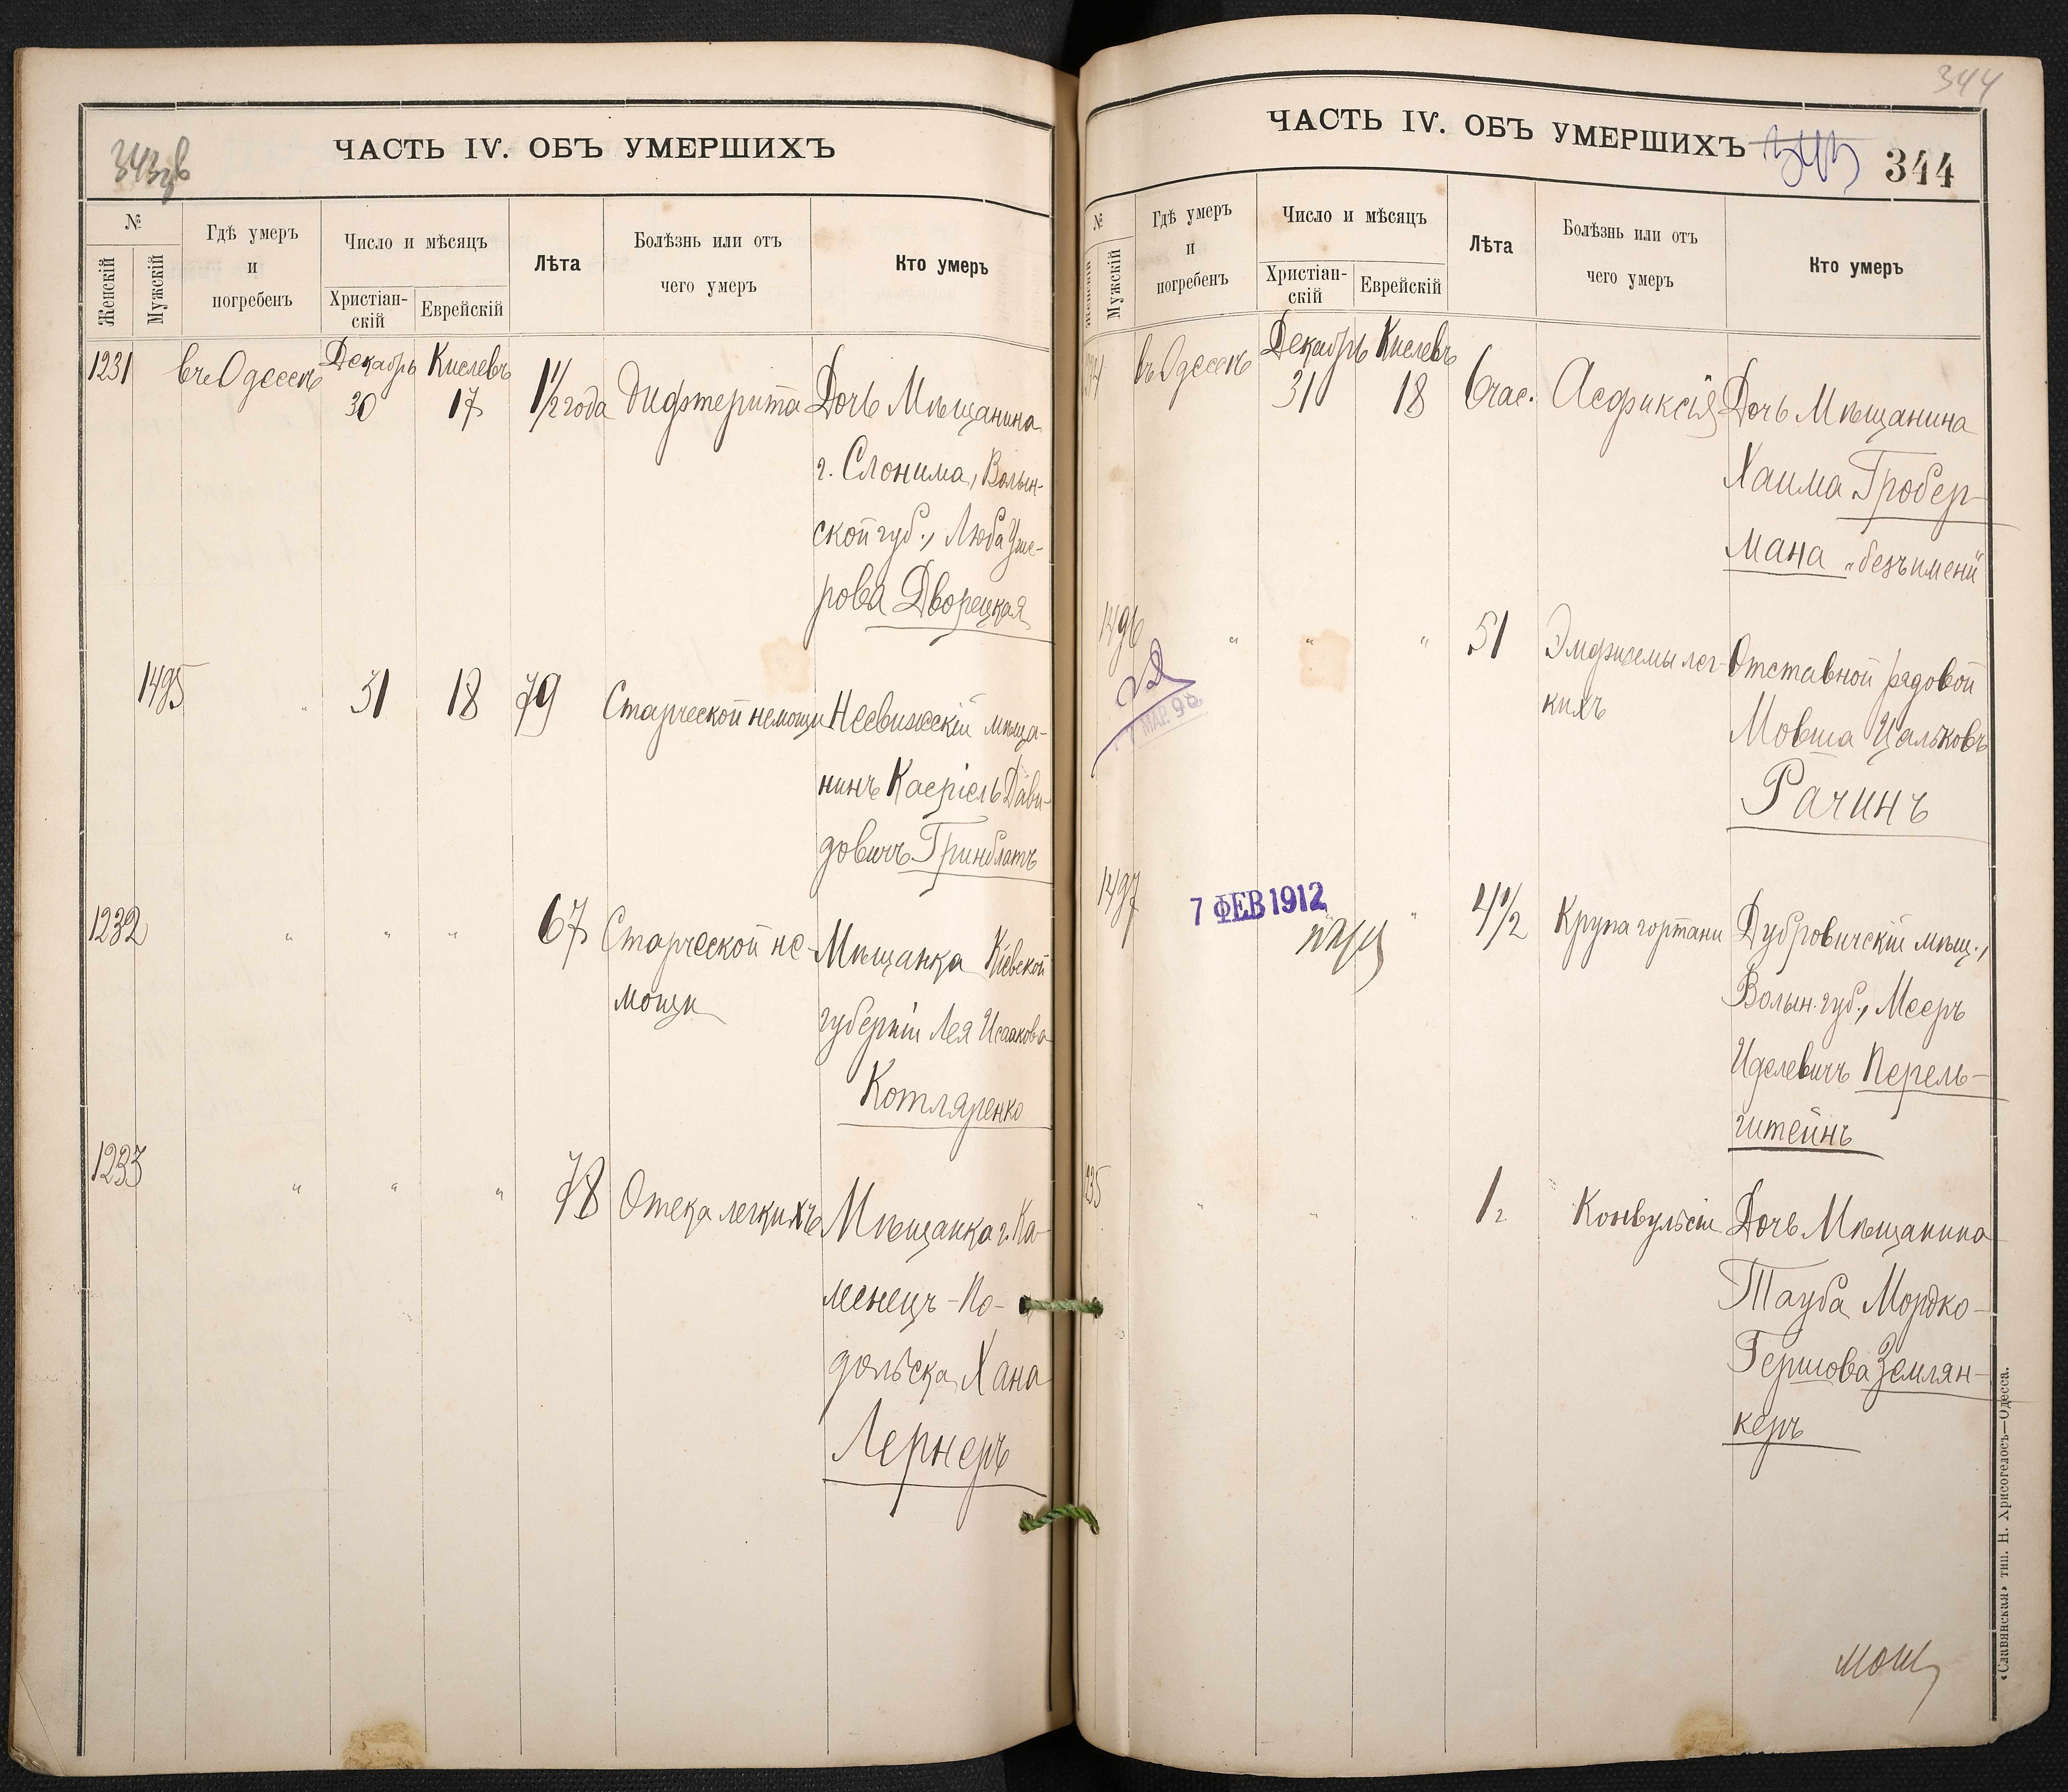 343 об
ЧАСТЬ IV. ОБЪ УМЕРШИХЪ
№
Женскій
Мужскій
Гдѣ умеръ
и
погребенъ
Число и мѣсяцъ
Христіан-
скій
Еврейскій
Лѣта
Болѣзнь или отъ
чего умеръ
Кто умеръ
1231 въ Одессѣ Декабрь 30 Кислевъ 17 1 1/2 года Дифтерита Дочь Мѣщанина
г. Слонима, Волын-
ской губ., Люба Уше-
рова Дворецкая
1495 " 31 18 79 Старческой немощи Несвижскій мѣща-
нинъ Касріель Дави-
довичъ Гринблатъ
1232 " " " 67 Старческой не- Мѣщанка Кіевской
мощи губерніи Лея Исаакова
Котляренко
1233 " " " 78 Отека легкихъ Мѣщанка г. Ка-
менецъ-По-
дольска Хана
Лернеръ
344
ЧАСТЬ IV. ОБЪ УМЕРШИХЪ
343 344
№
Женскій
Мужскій
Гдѣ умеръ
и
погребенъ
Число и мѣсяцъ
Христіан-
скій
Еврейскій
Лѣта
Болѣзнь или отъ
чего умеръ
Кто умеръ
въ Одессѣ Декабрь 31 Кислевъ 18 6 час. Асфиксія Дочь Мѣщанина
Хаима Гробер-
мана "безъ имени"
1496 " " " 51 Эмфиземы лег- Отставной рядовой
кихъ Мовша Цальковъ
Рачинъ
МАР. 98
1497 7 ФЕВ 1912 " 4 1/2 Крупа гортани Дубровичскій мѣщ.,
Волын. губ., Мееръ
Иделевичъ Перель-
штейнъ
35 " " " 1 г. Конвульсіи Дочь Мѣщанина
Тауба Мордко-
Гершова Землян-
керъ
«Славянская» тип. Н. Хрисогелосъ—Одесса.